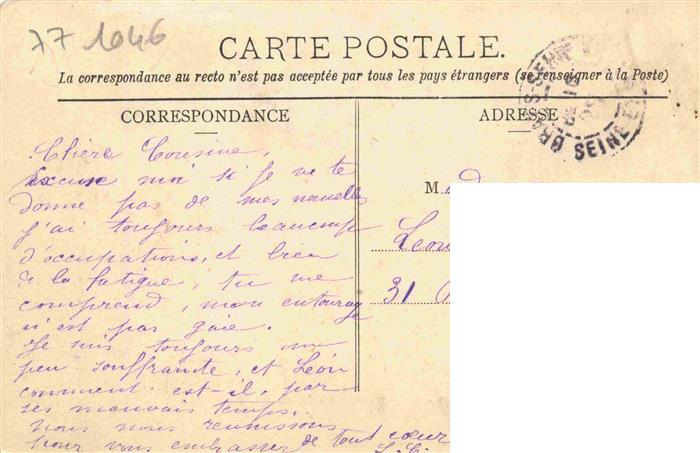 77 1046
CARTE POSTALE.
La correspondance au recto n'est pas acceptée par tous les pays étrangers (se renseigner à la Poste)
CORRESPONDANCE
Chère Cousine,
Excuse moi si je ne te
donne pas de mes nouvelles
j'ai toujours beaucoup
d'occupations, et bien
de la fatigue, tu me
comprend, mon entourage
n'est pas gaie.
Je suis toujours un
peu souffrante, et Léon
comment est-il, par
ses mauvais temps.
Nous nous reunissons
pour vous embrasser de tout cœur
ADRESSE
M
Léon
31
BRAY-S-SEINE SEINE